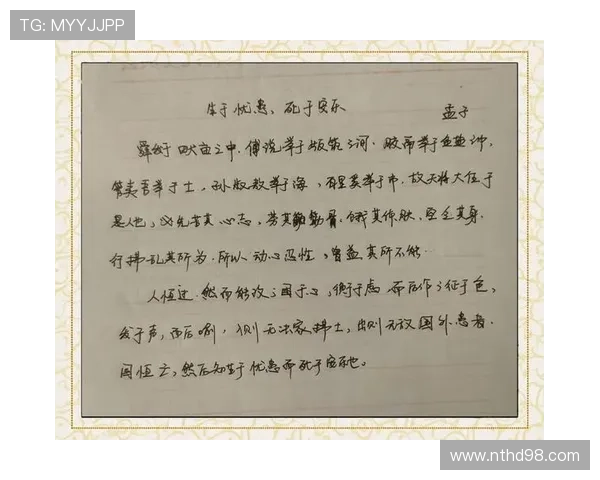 TG: MYYJJPP
生于忧患、死于安乐
孟子
舜发于畎亩之中，傅说举于版筑之间．胶鬲举于鱼盐之中，
管夷吾举于士，孙叔敖举于海，百里奚举于市．故天将大任于
是人也，必先苦其心志，劳其筋骨．饿其体肤．空乏其身．
行拂乱其所为．所以动心忍性，曾益其所不能．
人恒过．然而能改；困于心，衡于虑而后作；征于色，
发于声，而后喻，入则无法家拂士，出则无敌国外患者．
国恒亡，然后知生于忧患而死于安乐也。
www.nthd98.com